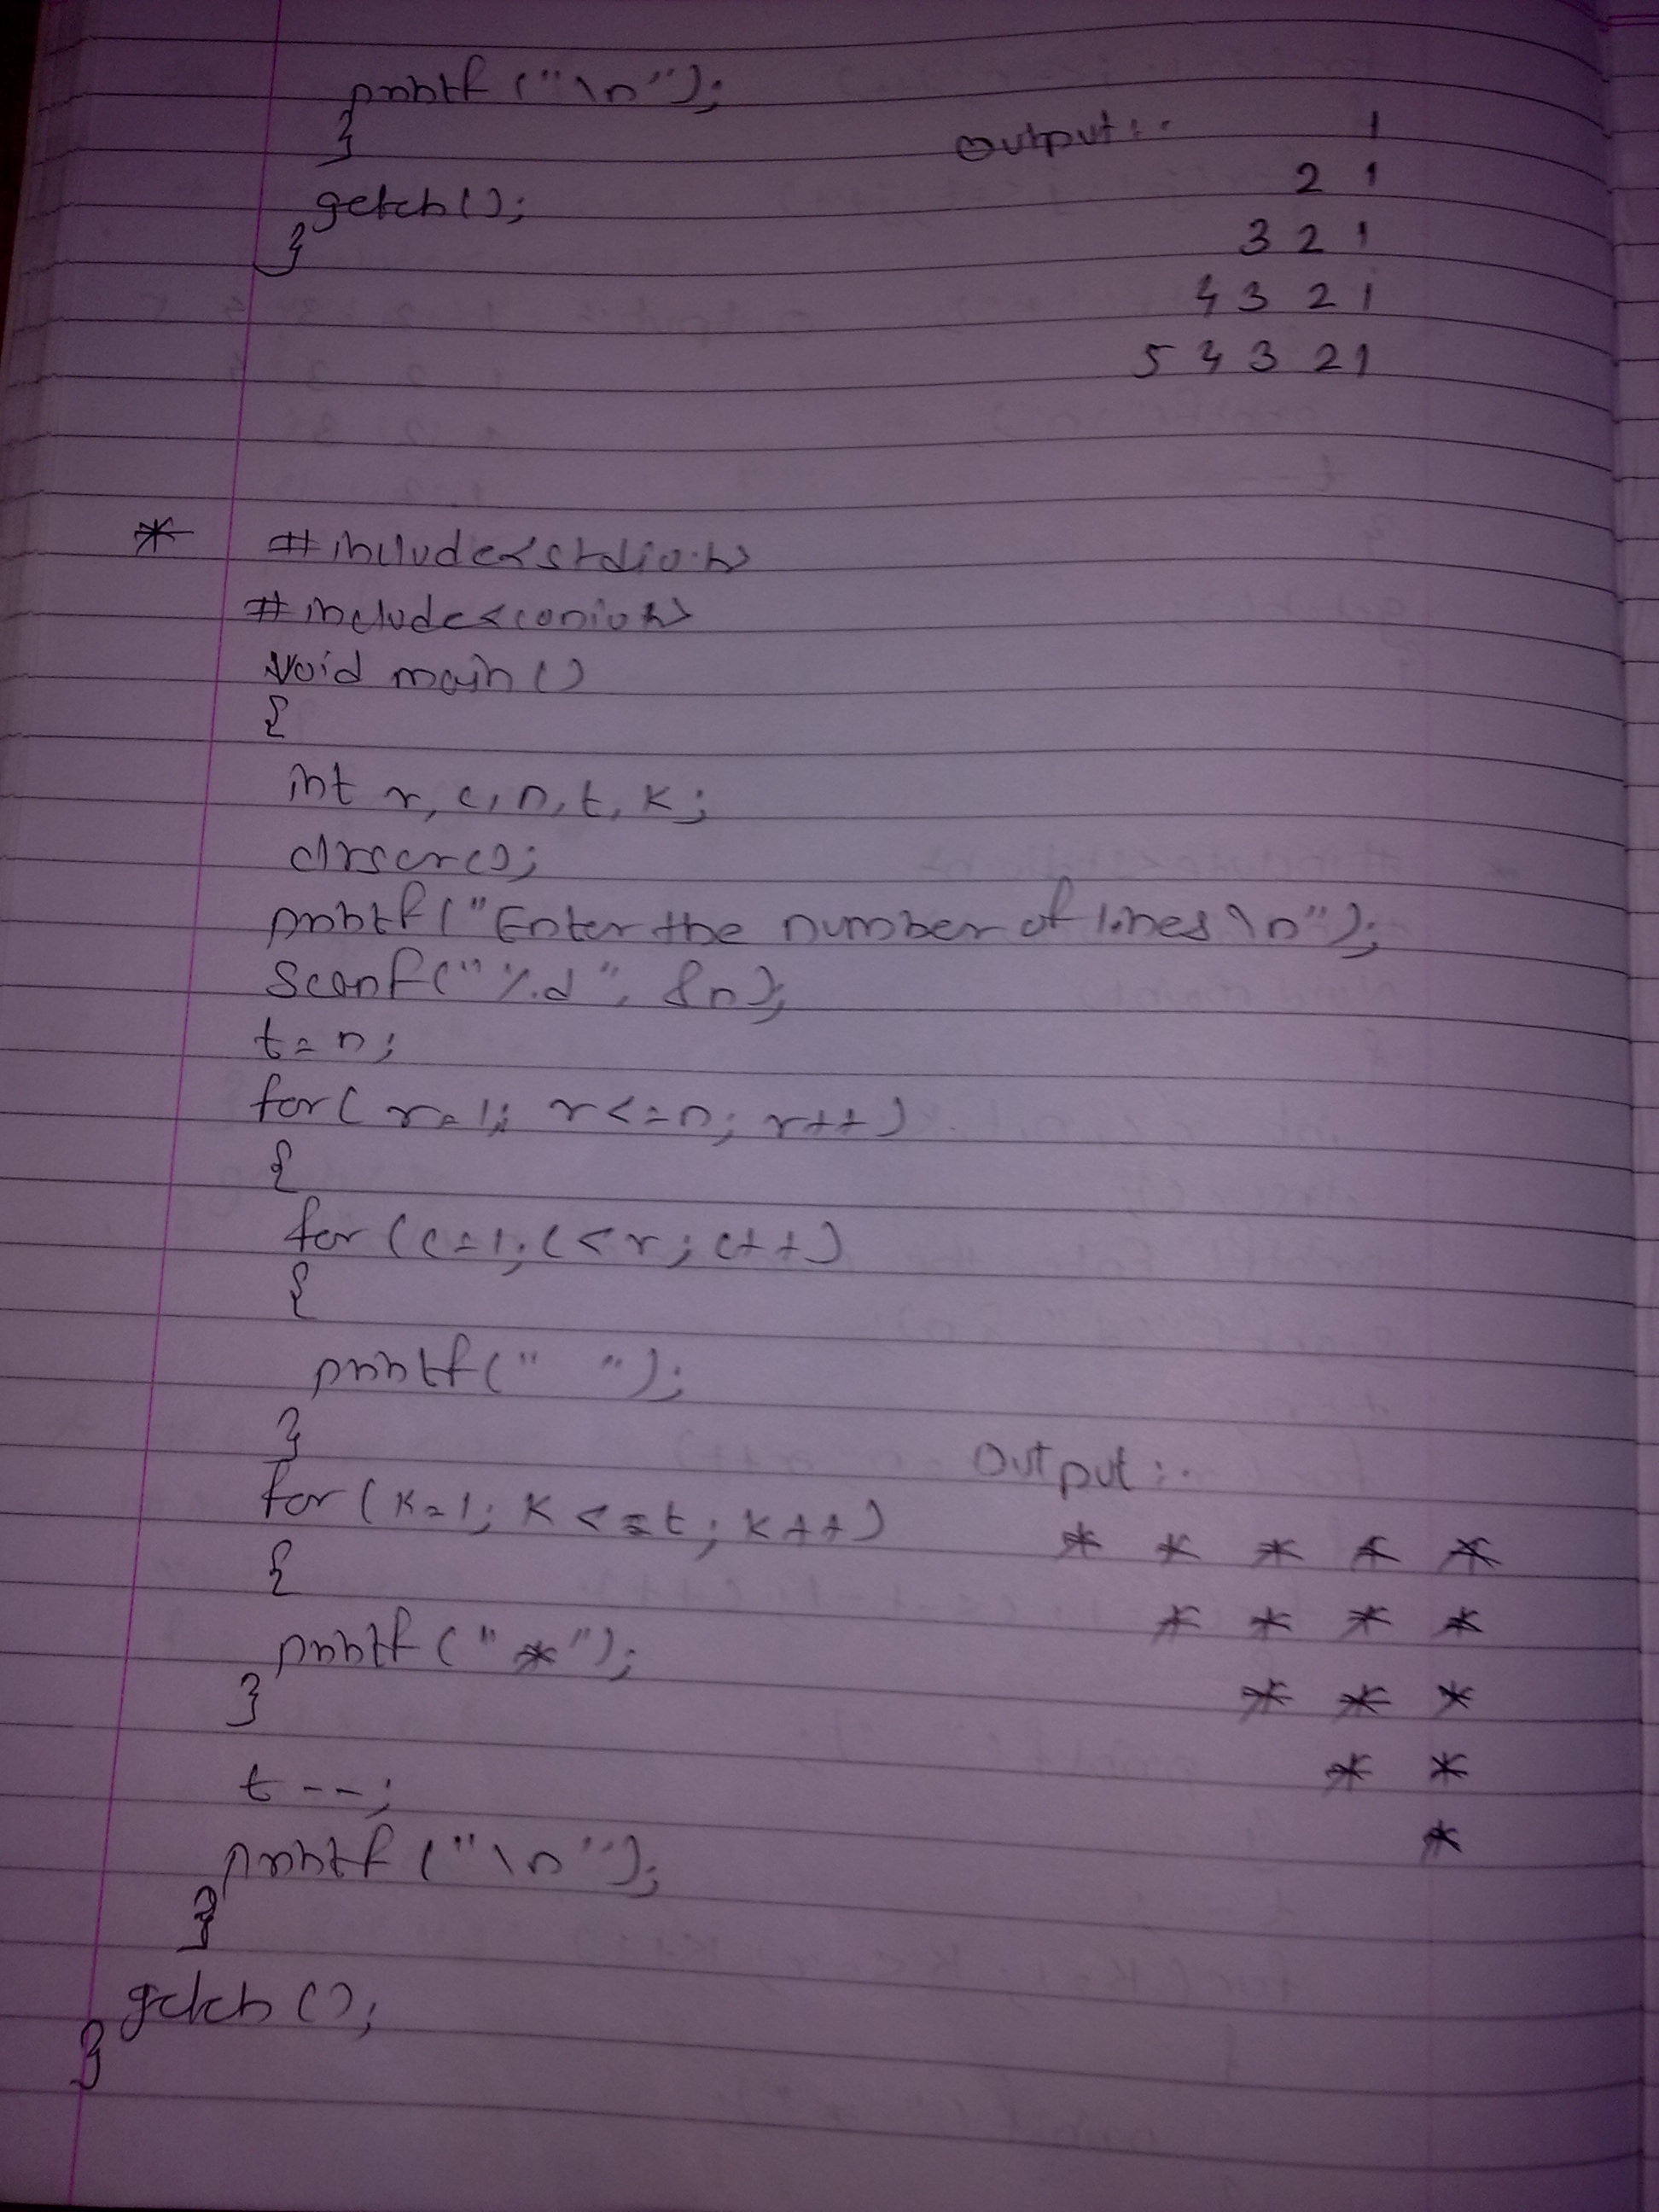 printf ("\n");
}
getch();
}
Output:-
1
2 1
3 2 1
4 3 2 1
5 4 3 2 1
* #include<stdio.h>
#include<conio.h>
void main ()
{
int r, c, n, t, k;
clrscr();
printf ("Enter the number of lines \n");
scanf ("%d", &n);
t=n;
for( r=1; r<=n; r++)
{
for (c=1; c<r; c++)
{
printf(" ");
}
for (k=1; k<=t; k++)
{
printf (" *");
}
t--;
printf ("\n");
}
getch ();
}
Output:-
* * * * *
* * * *
* * *
* *
*